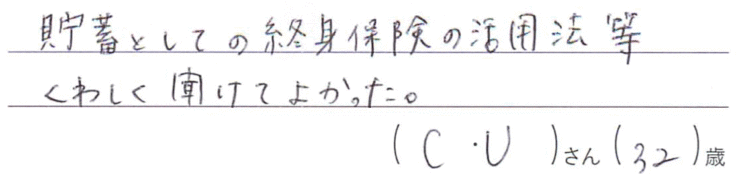 貯蓄としての終身保険の活用法等
くわしく聞けてよかった。
(C・U)さん(32)歳